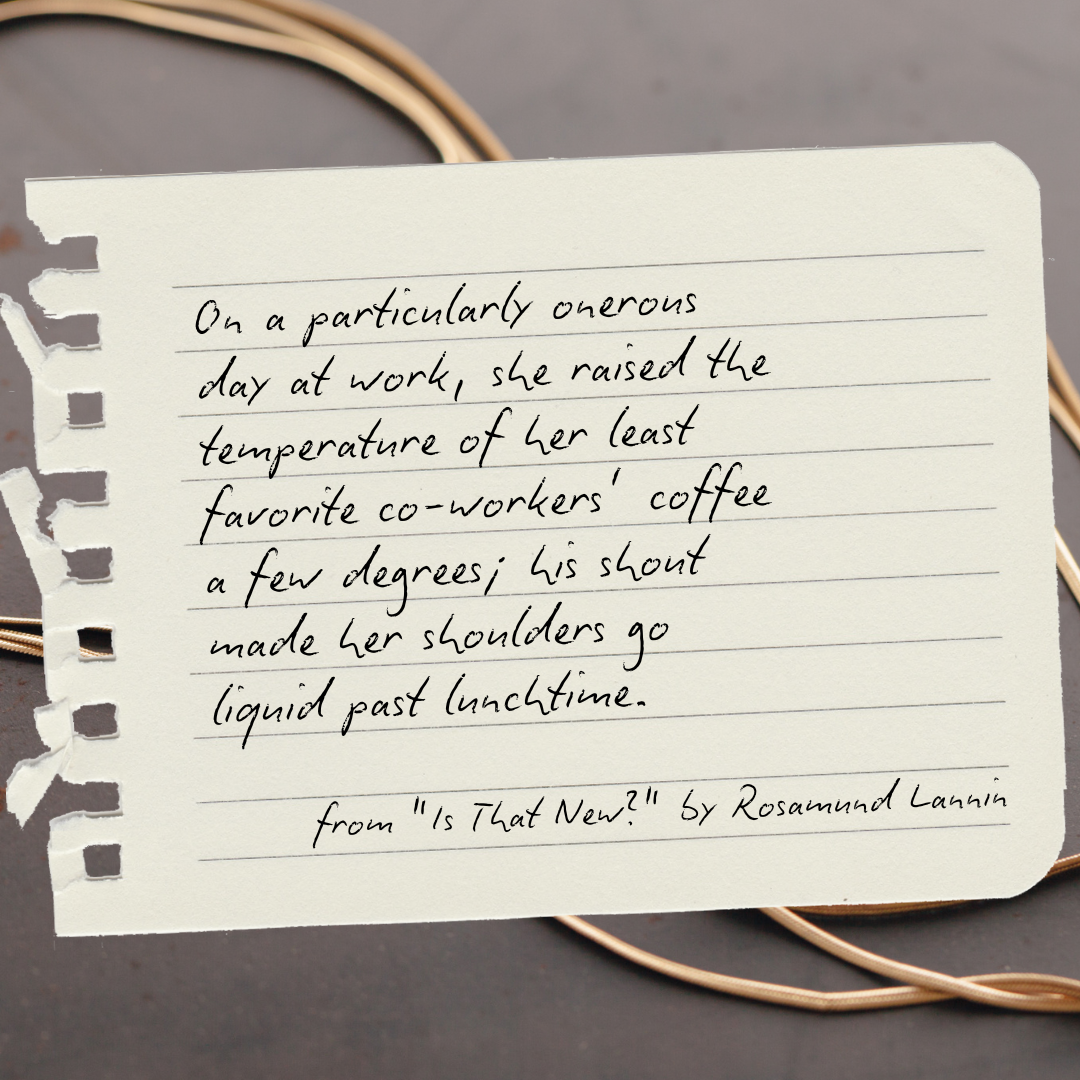 On a particularly onerous
day at work, she raised the
temperature of her least
favorite co-workers' coffee
a few degrees; his shout
made her shoulders go
liquid past lunchtime.
from "Is That New?" by Rosamund Lannin